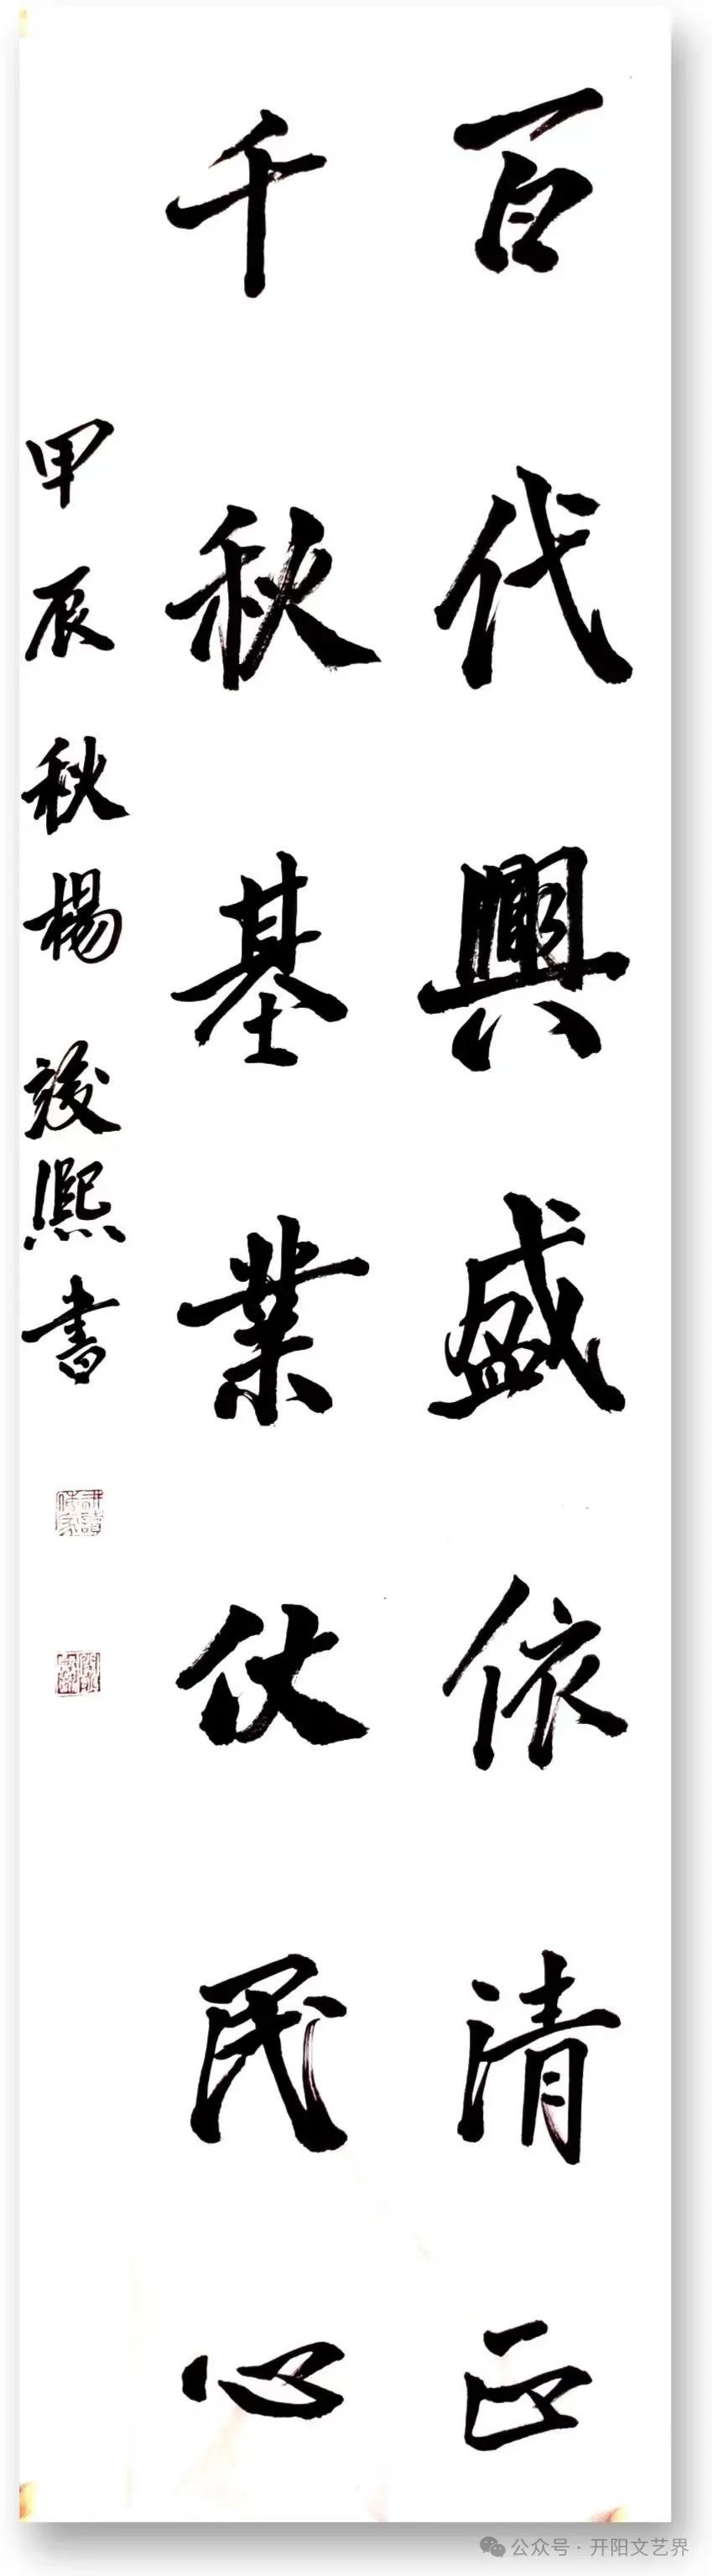 百代興盛依清正
千秋基業仗民心
甲辰秋楊竣熙書
公众号·开阳文艺界